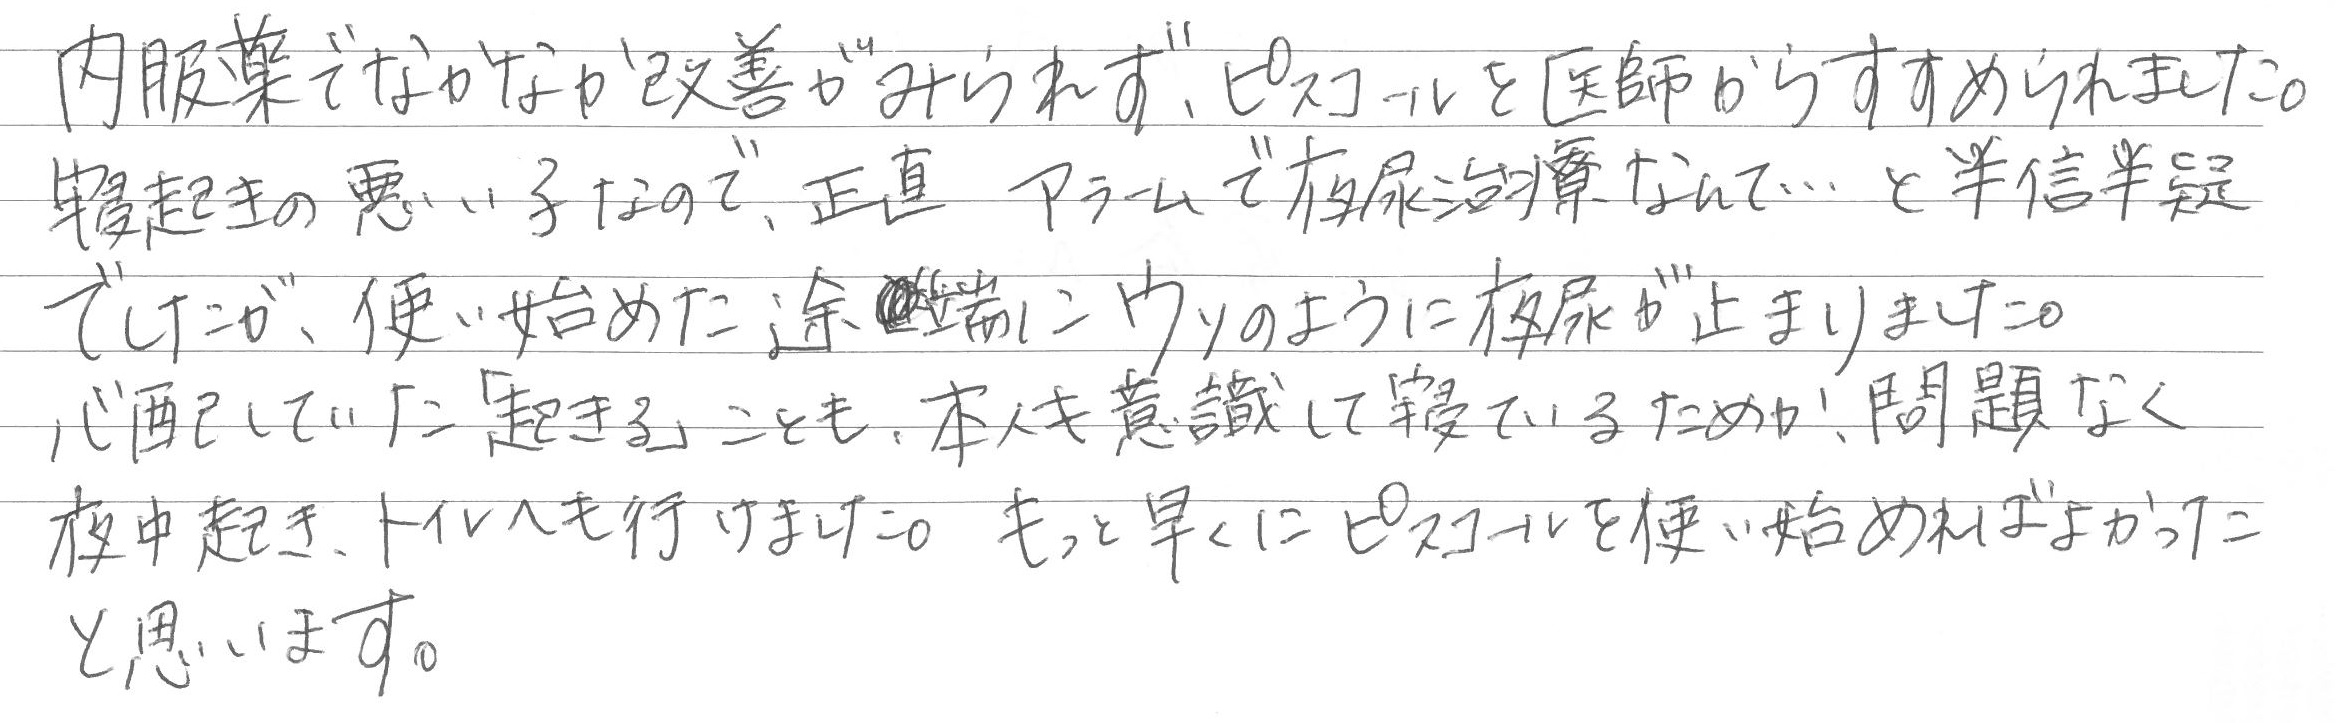 内服薬でなかなか改善がみられず、ピスコールを医師からすすめられました。
寝起きの悪い子なので、正直 アラームで夜尿治療なんて…と半信半疑
でしたが、使い始めた途端にウソのように夜尿が止まりました。
心配していた「起きる」ことも、本人も意識して寝ているためか、問題なく
夜中起き、トイレへも行けました。もっと早くにピスコールを使い始めればよかった
と思います。